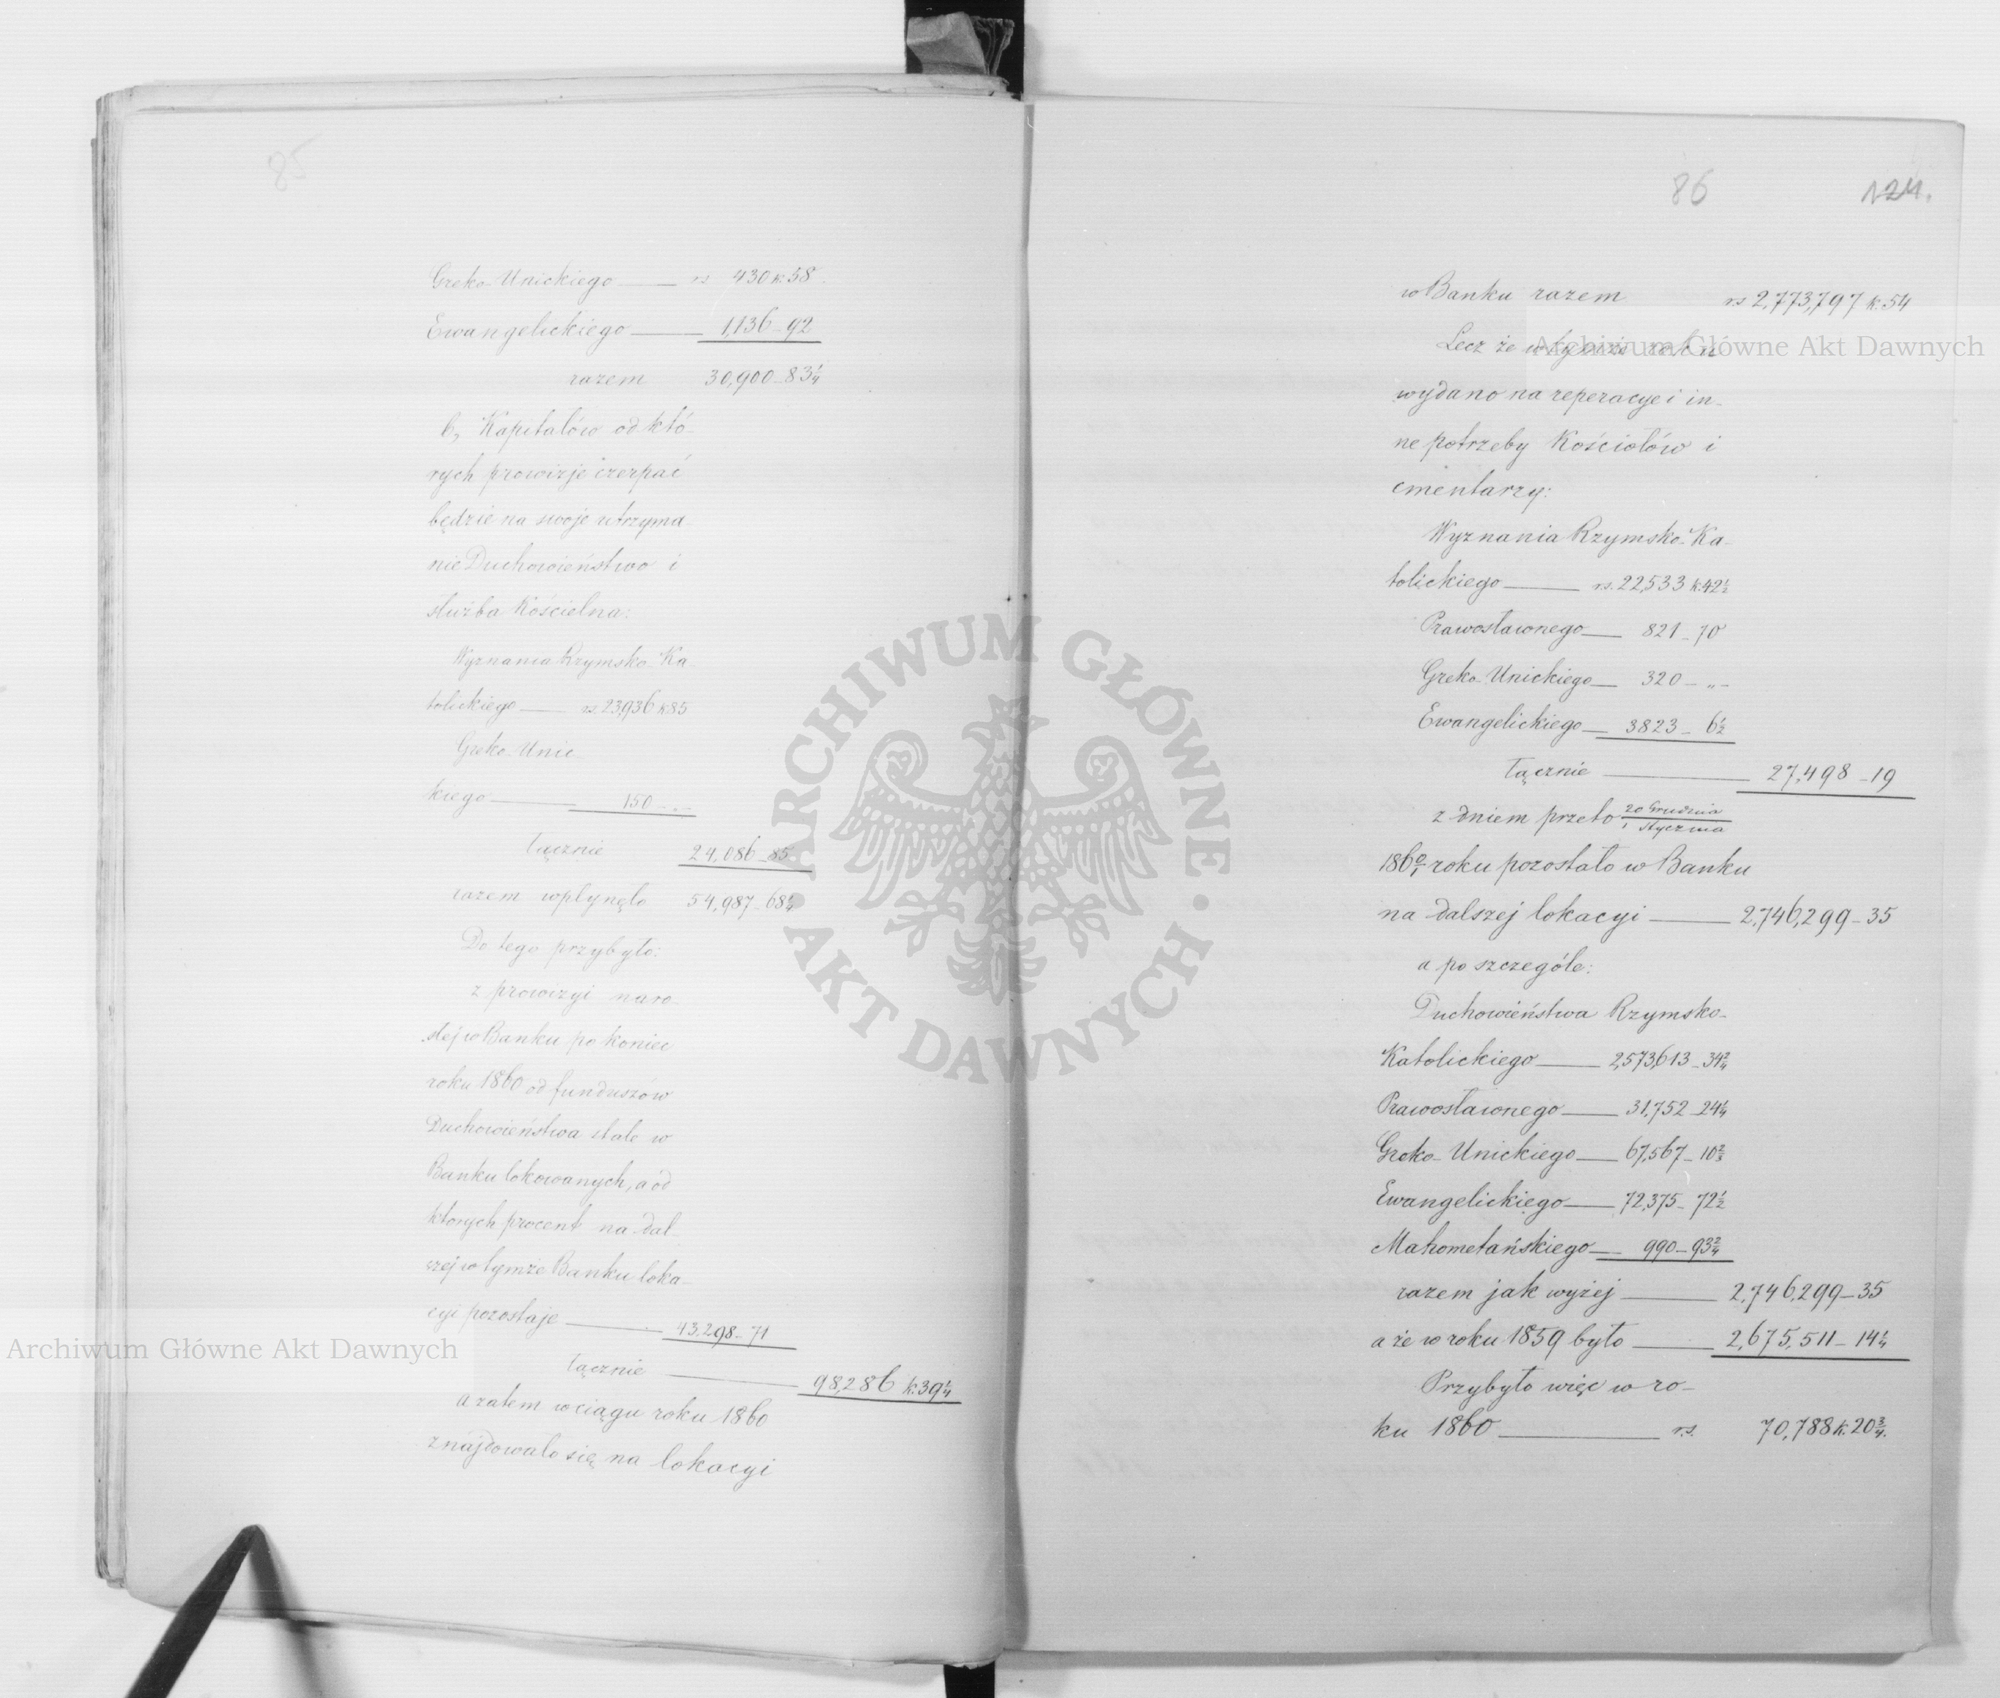 85
Greko-Unickiego — rs 430 k. 58
Ewangelickiego — 1,136 — 92
razem 30,900 — 83¼
b, Kapitałów od któ-
rych prowizje czerpać
będzie na swoje utrzyma-
nie Duchowieństwo i
służba Kościelna:
Wyznania Rzymsko-Ka-
tolickiego — rs. 23,936 k 85
Greko-Unic-
kiego — 150 — „ —
łącznie 24,086 — 85
razem wpłynęło 54,987 — 68¼
Do tego przybyło:
z prowizyi naro-
słej w Banku po koniec
roku 1860 od funduszów
Duchowieństwa stale w
Banku lokowanych, a od
ktorych procent na dal-
szej w tymże Banku loka-
cyi pozostaje — 43,298 — 71
łącznie — 98,286 k. 39¼
a zatem w ciągu roku 1860
znajdowało się na lokacyi
86
124.
w Banku razem rs 2,773,797 k. 54
Lecz że w tymże roku
wydano na reperacye i in-
ne potrzeby Kościołów i
cmentarzy:
Wyznania Rzymsko-Ka-
tolickiego — rs. 22,533 k. 42½
Prawosławnego — 821 — 70
Greko-Unickiego — 320 — „ —
Ewangelickiego — 3823 — 6½
łącznie — 27,498 — 19
z dniem przeto 20 Grudnia / 1 Stycznia
1860/1 roku pozostało w Banku
na dalszej lokacyi — 2,746,299 — 35
a po szczególe:
Duchowieństwa Rzymsko-
Katolickiego — 2,573,613 — 34¾
Prawosławnego — 31,752 — 24¼
Greko-Unickiego — 67,567 — 10
Ewangelickiego — 72,375 — 72½
Mahometańskiego — 990 — 93¾
razem jak wyżej — 2,746,299 — 35
a że w roku 1859 było — 2,675,511 — 14¼
Przybyło więc w ro-
ku 1860 — rs. 70,788 k. 20¾.
ARCHIWUM GŁÓWNE · AKT DAWNYCH ·
Archiwum Główne Akt Dawnych
Archiwum Główne Akt Dawnych